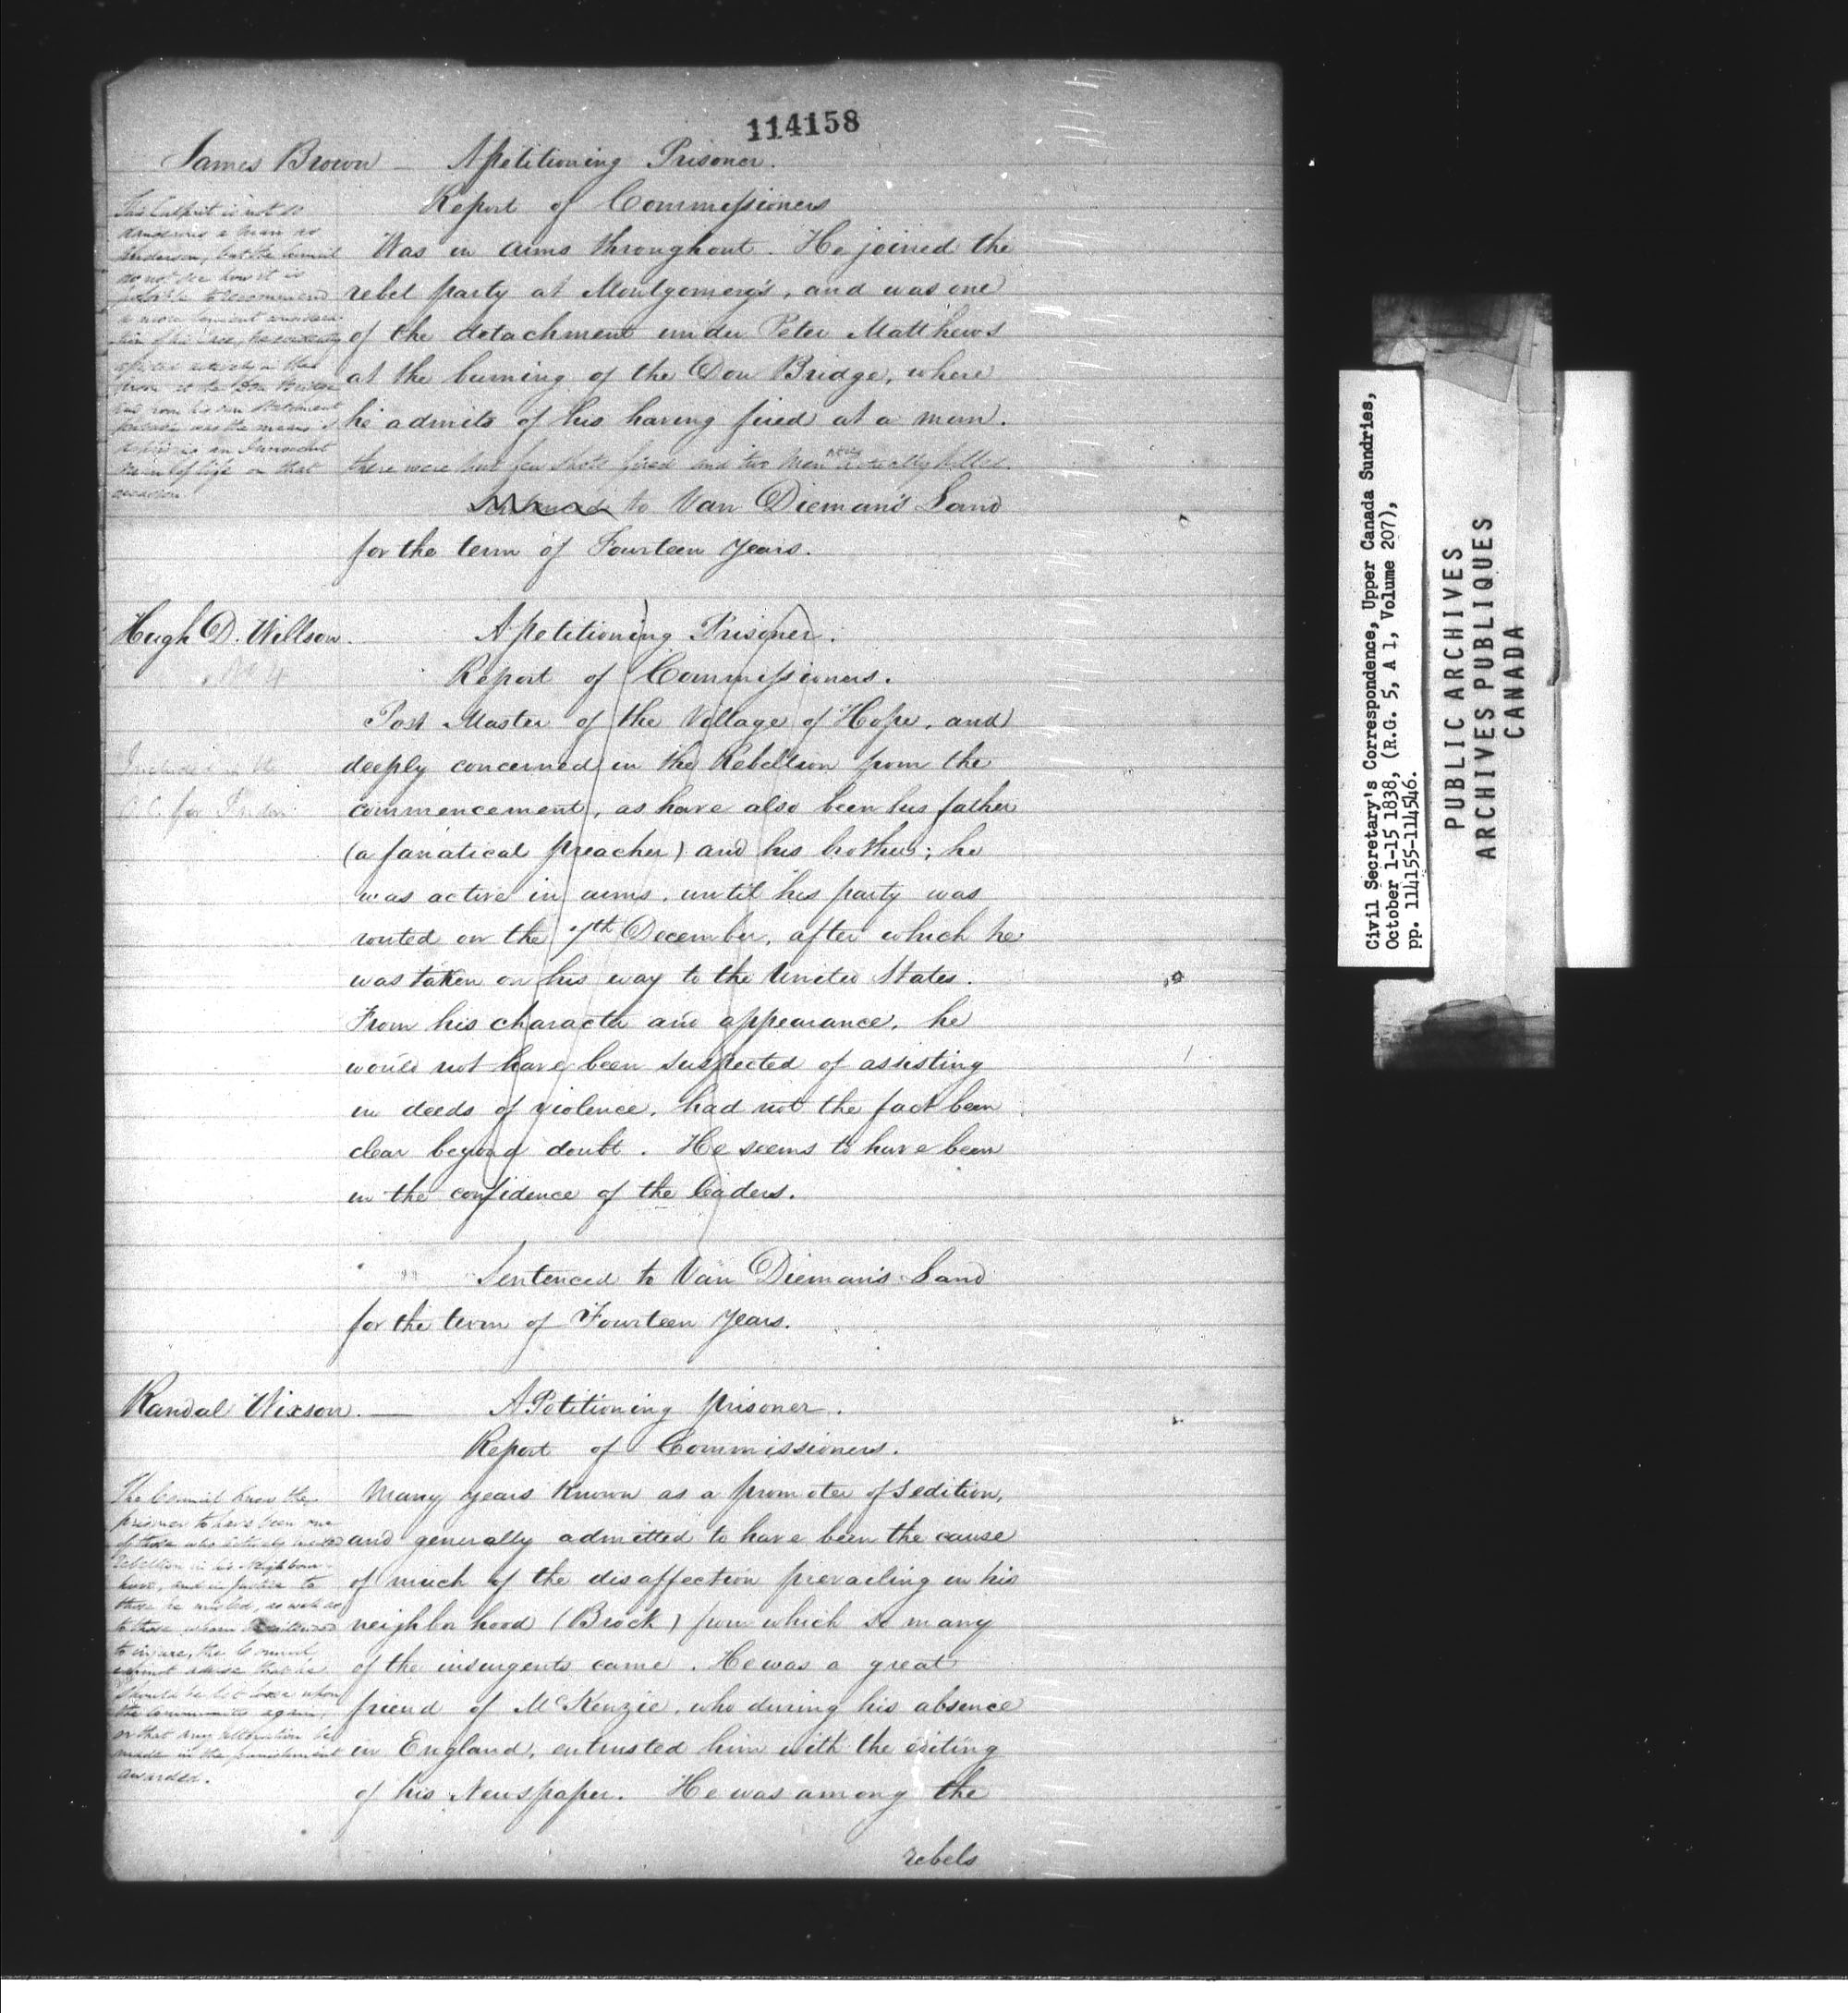 114158
James Brown — A petitioning Prisoner.
Report of Commissioners
Was in arms throughout. He joined the
rebel party at Montgomery's, and was one
of the detachment under Peter Matthews
at the burning of the Don Bridge, where
he admits of his having fired at a man.
there were but few shots fired and two men actually killed.
to Van Dieman's Land
for the term of Fourteen Years.
This Culprit is not so
dangerous a man as
Anderson, but the Council
do not see how it is
possible to recommend
a more lenient
of his Case, he evidently
at the Don Bridge
and from his own statement
was the means of
an Innocent
man of life on that
occasion
Hugh D. Willson. A petitioning Prisoner.
No 4
Report of Commissioners.
Post Master of the Village of Hope, and
deeply concerned in the Rebellion from the
commencement, as have also been his father
(a fanatical preacher) and his brother; he
was active in arms, until his party was
routed on the 7th December, after which he
was taken on his way to the United States.
From his character and appearance, he
would not have been suspected of assisting
in deeds of violence, had not the fact been
clear beyond doubt. He seems to have been
in the confidence of the leaders.
Included in the
Sentenced to Van Dieman's Land
for the term of Fourteen Years.
Randal Wixson. — A Petitioning prisoner.
Report of Commissioners.
Many years known as a promoter of sedition,
and generally admitted to have been the cause
of much of the disaffection prevailing in his
neighborhood (Brock) from which so many
of the insurgents came. He was a great
friend of McKenzie, who during his absence
in England, entrusted him with the editing
of his Newspaper. He was among the
rebels
The Council know the
prisoner to have been one
of those who actively
Rebellion in his Neighbour-
hood, and in justice to
those he misled, as well as
to those whom he intended
to injure, the Council
cannot advise that he
should be let loose upon
the community again,
or that any alteration be
made in the punishment
awarded.
Civil Secretary's Correspondence, Upper Canada Sundries,
October 1-15 1838, (R.G. 5, A 1, Volume 207),
pp. 114155-114546.
PUBLIC ARCHIVES
ARCHIVES PUBLIQUES
CANADA